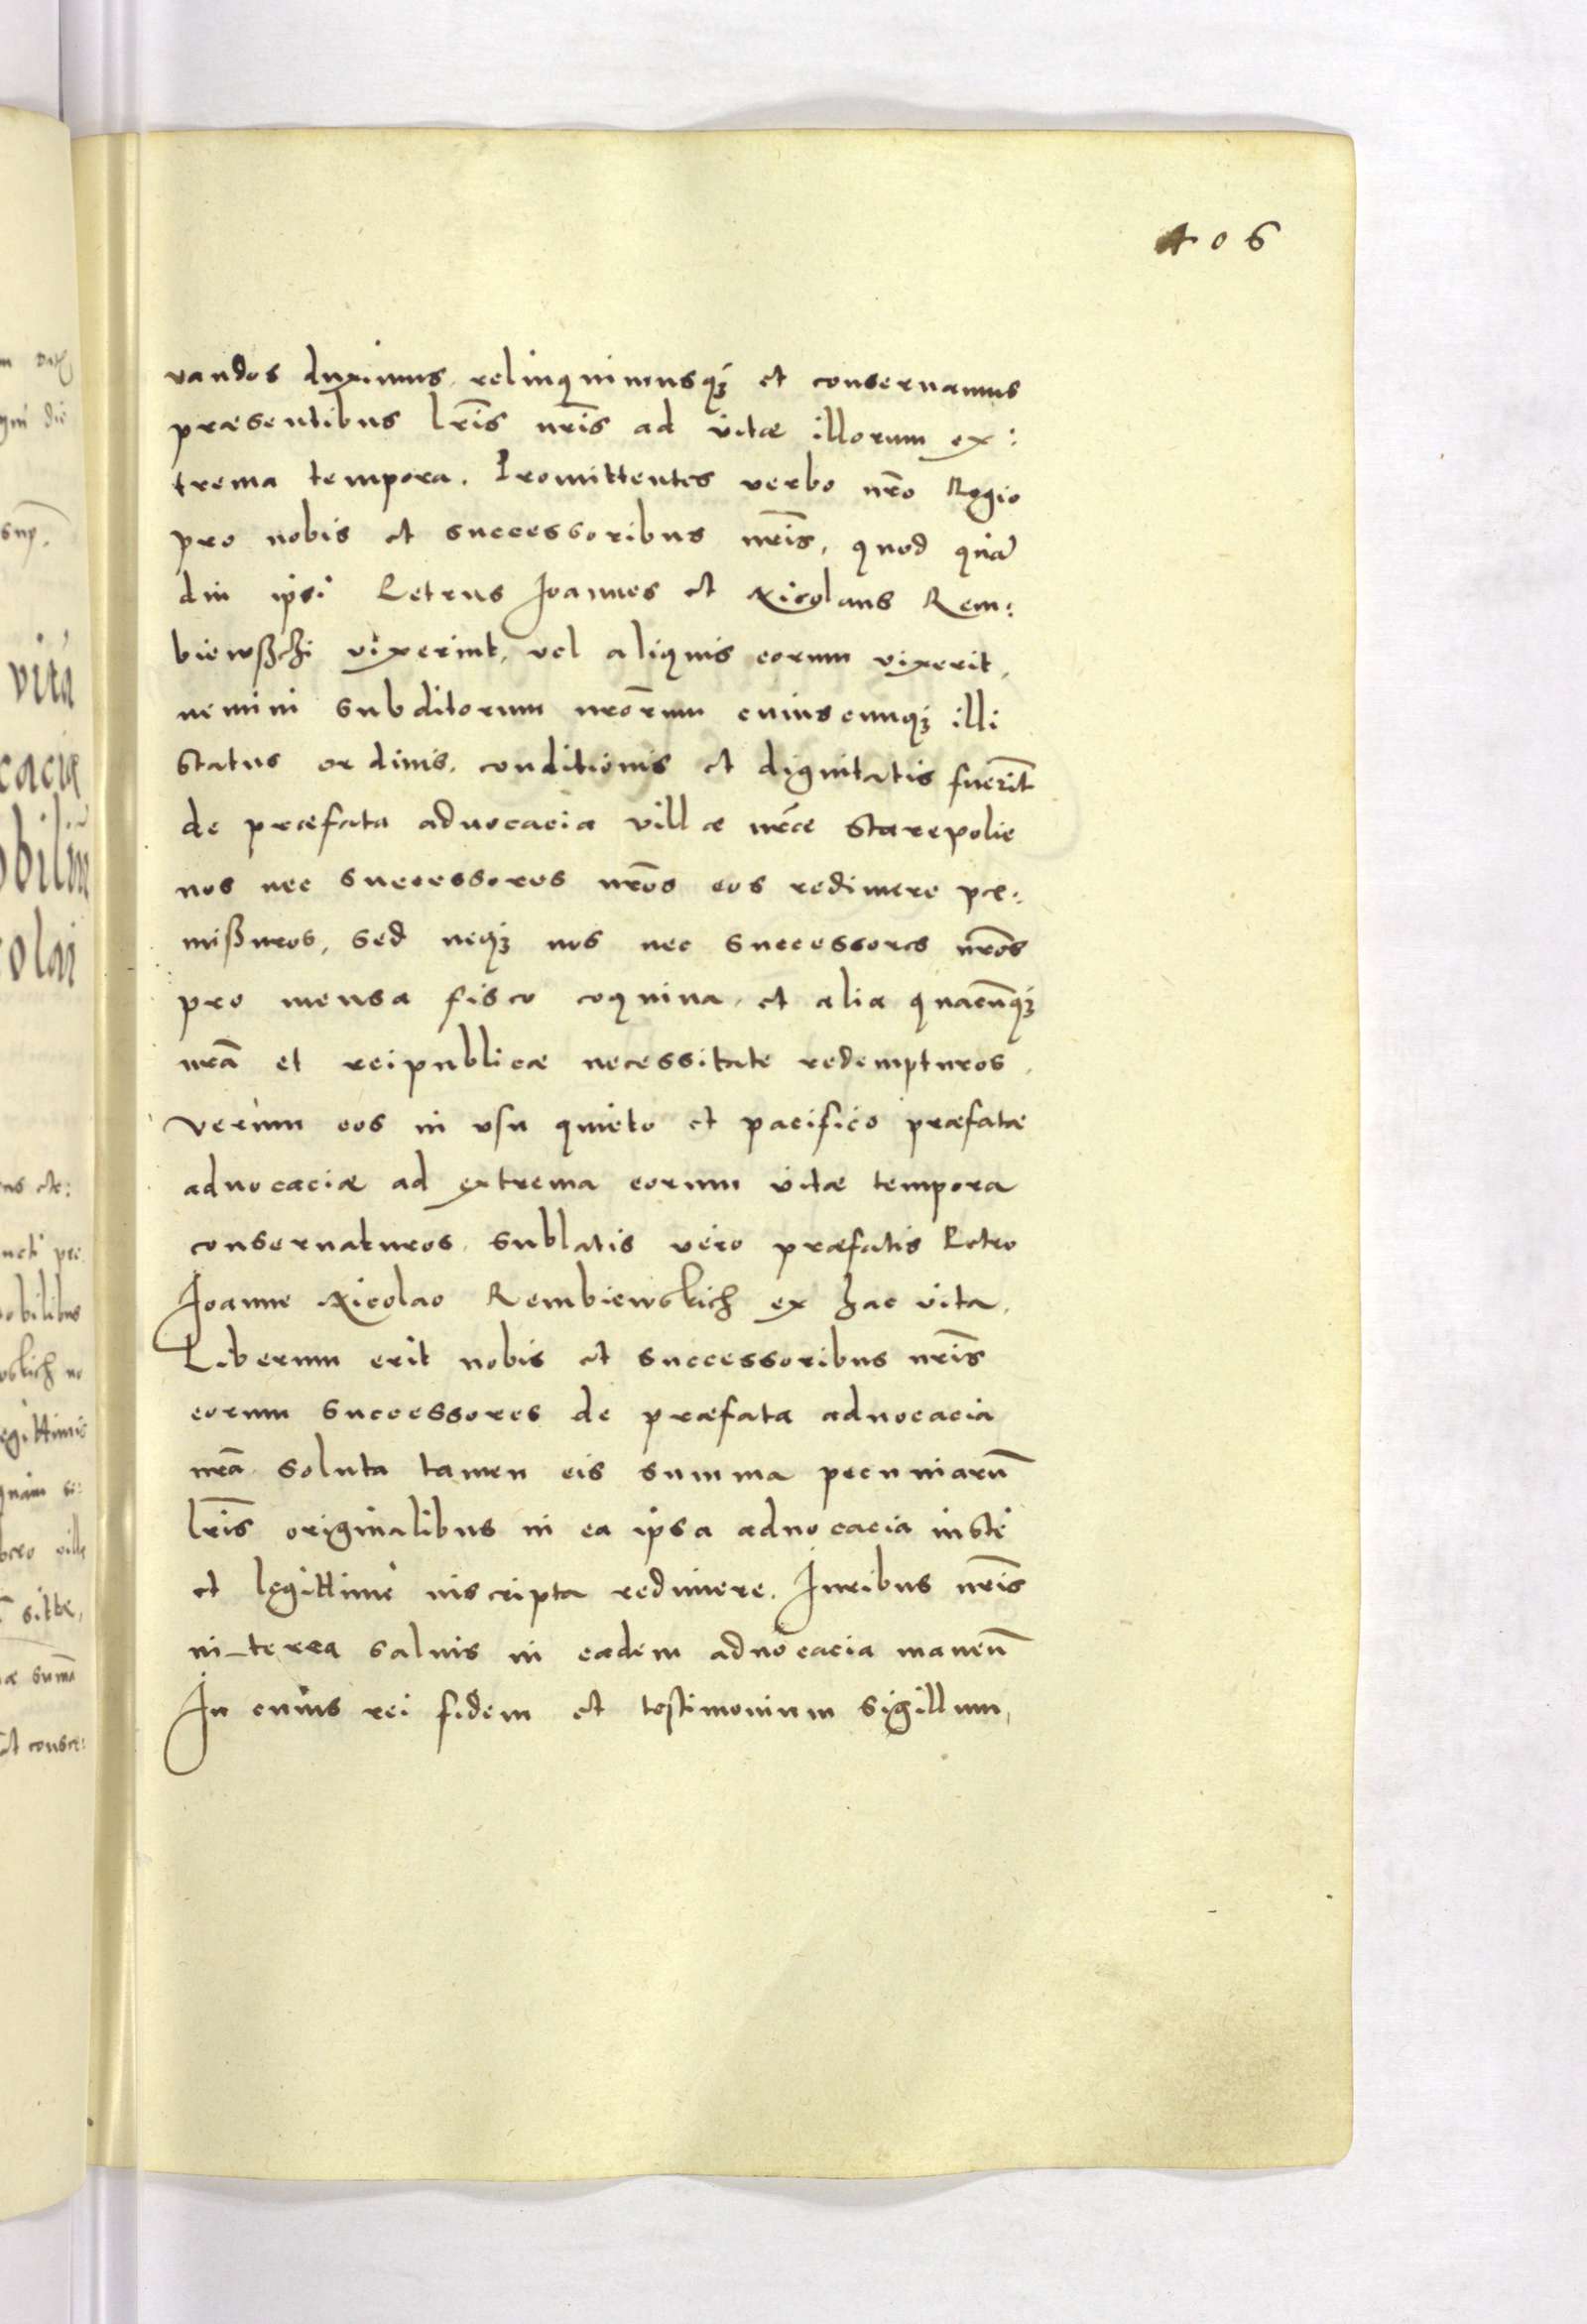 406
uandos duximus, relinquimusq₃ et conseruamus
præsentibus lr̃is nr̃is ad vitæ illorum ex:
trema tempora. Promittentes verbo nr̃o Regio
pro nobis et successoribus nr̃is, quod quã
diu ipsi Petrus Joannes et Nicolaus Rem:
biewßchi vixerint, vel aliquis eorum vixerit,
nemini subditorum nr̃orum cuiuscunq₃ illi
status ordinis, conditionis et dignitatis fuerĩt
de præfata aduocacia villæ nr̃æ Starepolie
nos nec successores nr̃os eos redimere per:
mißuros, sed neq₃ nos nec successores nr̃os
pro mensa fisco coquina, et alia quacũq₃
nr̃a et reipublicæ necessitate redempturos,
verum eos in vsu quieto et pacifico præfatæ
aduocaciæ ad extrema eorum vitæ tempora
conseruaturos, sublatis vero præfatis Petro
Joanne Nicolao Rembiewskich ex hac vita,
Liberum erit nobis et successoribus nr̃is
eorum successores de præfata aduocacia
nr̃a soluta tamen eis summa pecuniarũ
lr̃is originalibus in ea ipsa aduocacia iuste
et legittime inscripta redimere. Juribus nr̃is
in-terea saluis in eadem aduocacia maneñ
In cuius rei fidem et testimonium sigillum,